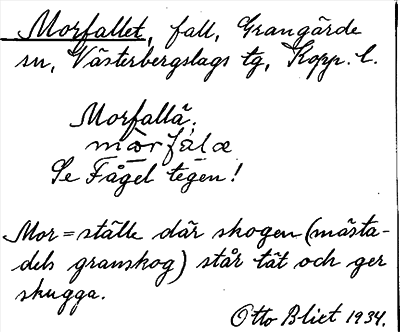 Morfallet, fall, Grangärde
sn, Västerbergslags tg, Kopp. l.
Morfallä.
mɷrfálæ
Se Fågel tegen!
Mor = ställe där skogen (mästa-
dels granskog) står tät och ger
skugga.
Otto Blixt 1934.